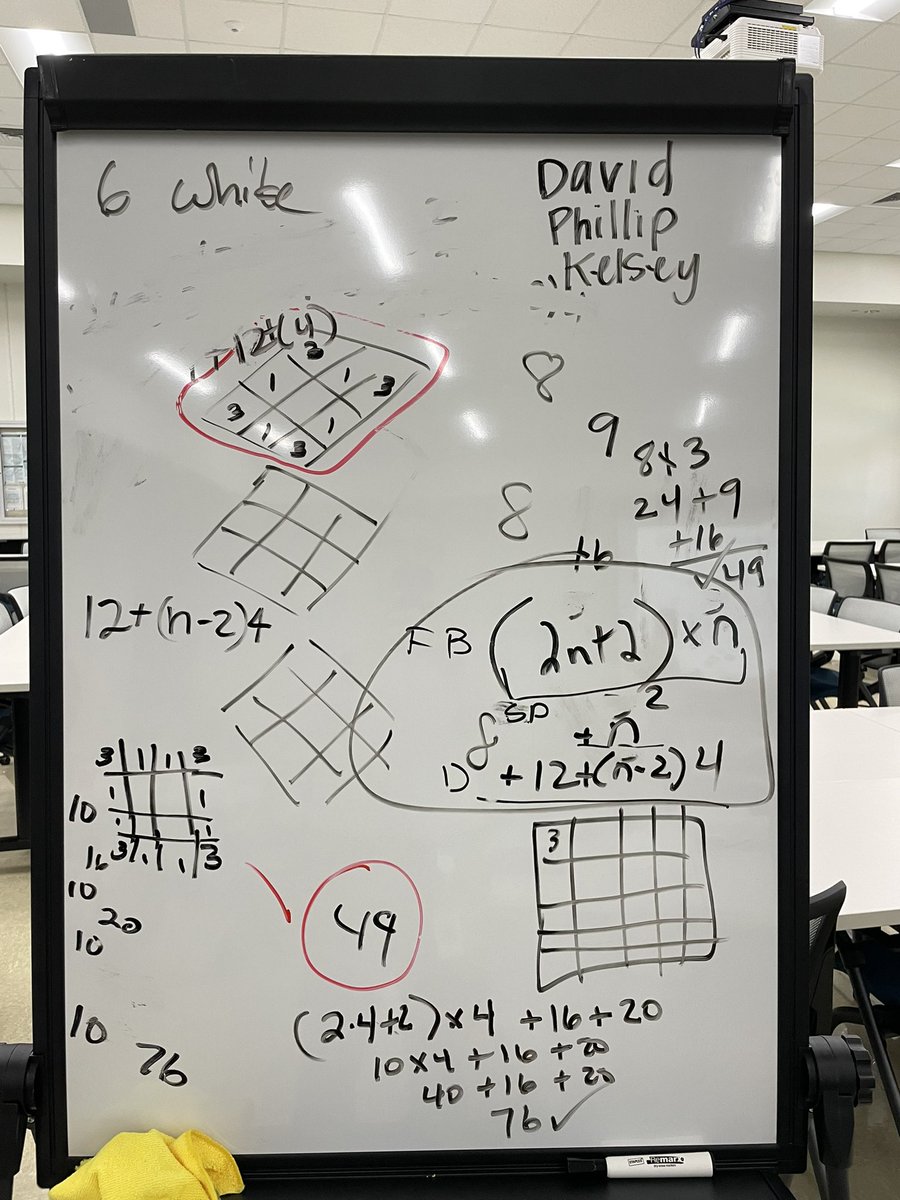 6 White
David
Phillip
Kelsey
12+(4)
3
1
1
3
3
1
1
3
8
9
8x3
24+9
+16
✓49
8
+6
12+(n-2)4
FB (2n+2) x n
SD
8
+ n²
D + 12+(n-2)4
3 1 1 3
1 1
10
1
16 3 1 1 3
10
20
10
10
76
49
3
(2·4+2)x4 +16+20
10x4+16+20
40+16+20
76✓
Remarx